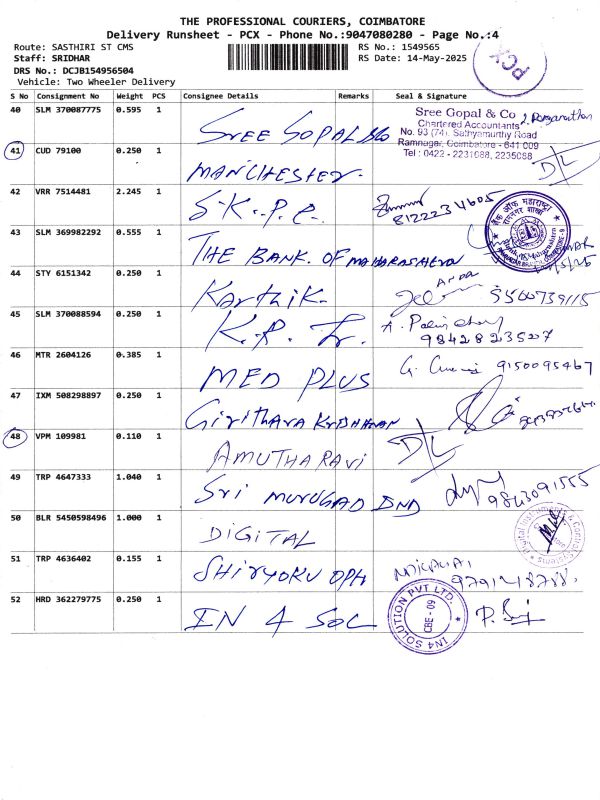 THE PROFESSIONAL COURIERS, COIMBATORE
Delivery Runsheet - PCX - Phone No.:9047080280 - Page No.:4
Route: SASTHIRI ST CMS
RS No.: 1549565
Staff: SRIDHAR
RS Date: 14-May-2025
DRS No.: DCJB154956504
Vehicle: Two Wheeler Delivery
PCX
S No Consignment No Weight PCS Consignee Details Remarks Seal & Signature
40 SLM 370087775 0.595 1 SREE GOPAL &Co
Sree Gopal & Co
Chartered Accountants
No. 93 (74), Sathyamurthy Road
Ramnagar, Coimbatore - 641 009
Tel : 0422 - 2231688, 2235068
41 CUD 79100 0.250 1 MANCHESTER. D/L
42 VRR 7514481 2.245 1 S.K.P.C. 8122234605
43 SLM 369982292 0.555 1 THE BANK OF MAHARASHTRA
बैंक ऑफ महाराष्ट्र
44 STY 6151342 0.250 1 Karthik. 9500739115
45 SLM 370088594 0.250 1 K.P. 98428235207
46 MTR 2604126 0.385 1 MED PLUS 9150095467
47 IXM 508298897 0.250 1 Girithara Krishnan
48 VPM 109981 0.110 1 AMUTHA RAVI D/L
49 TRP 4647333 1.040 1 Sri MURUGAD IND 9843091555
50 BLR 5450598496 1.000 1 DIGITAL
Digital Instruments & Control Systems
51 TRP 4636402 0.155 1 SHIRYOKU OPH
52 HRD 362279775 0.250 1 IN 4 SOL
IN4 SOLUTION PVT LTD.
CBE - 09